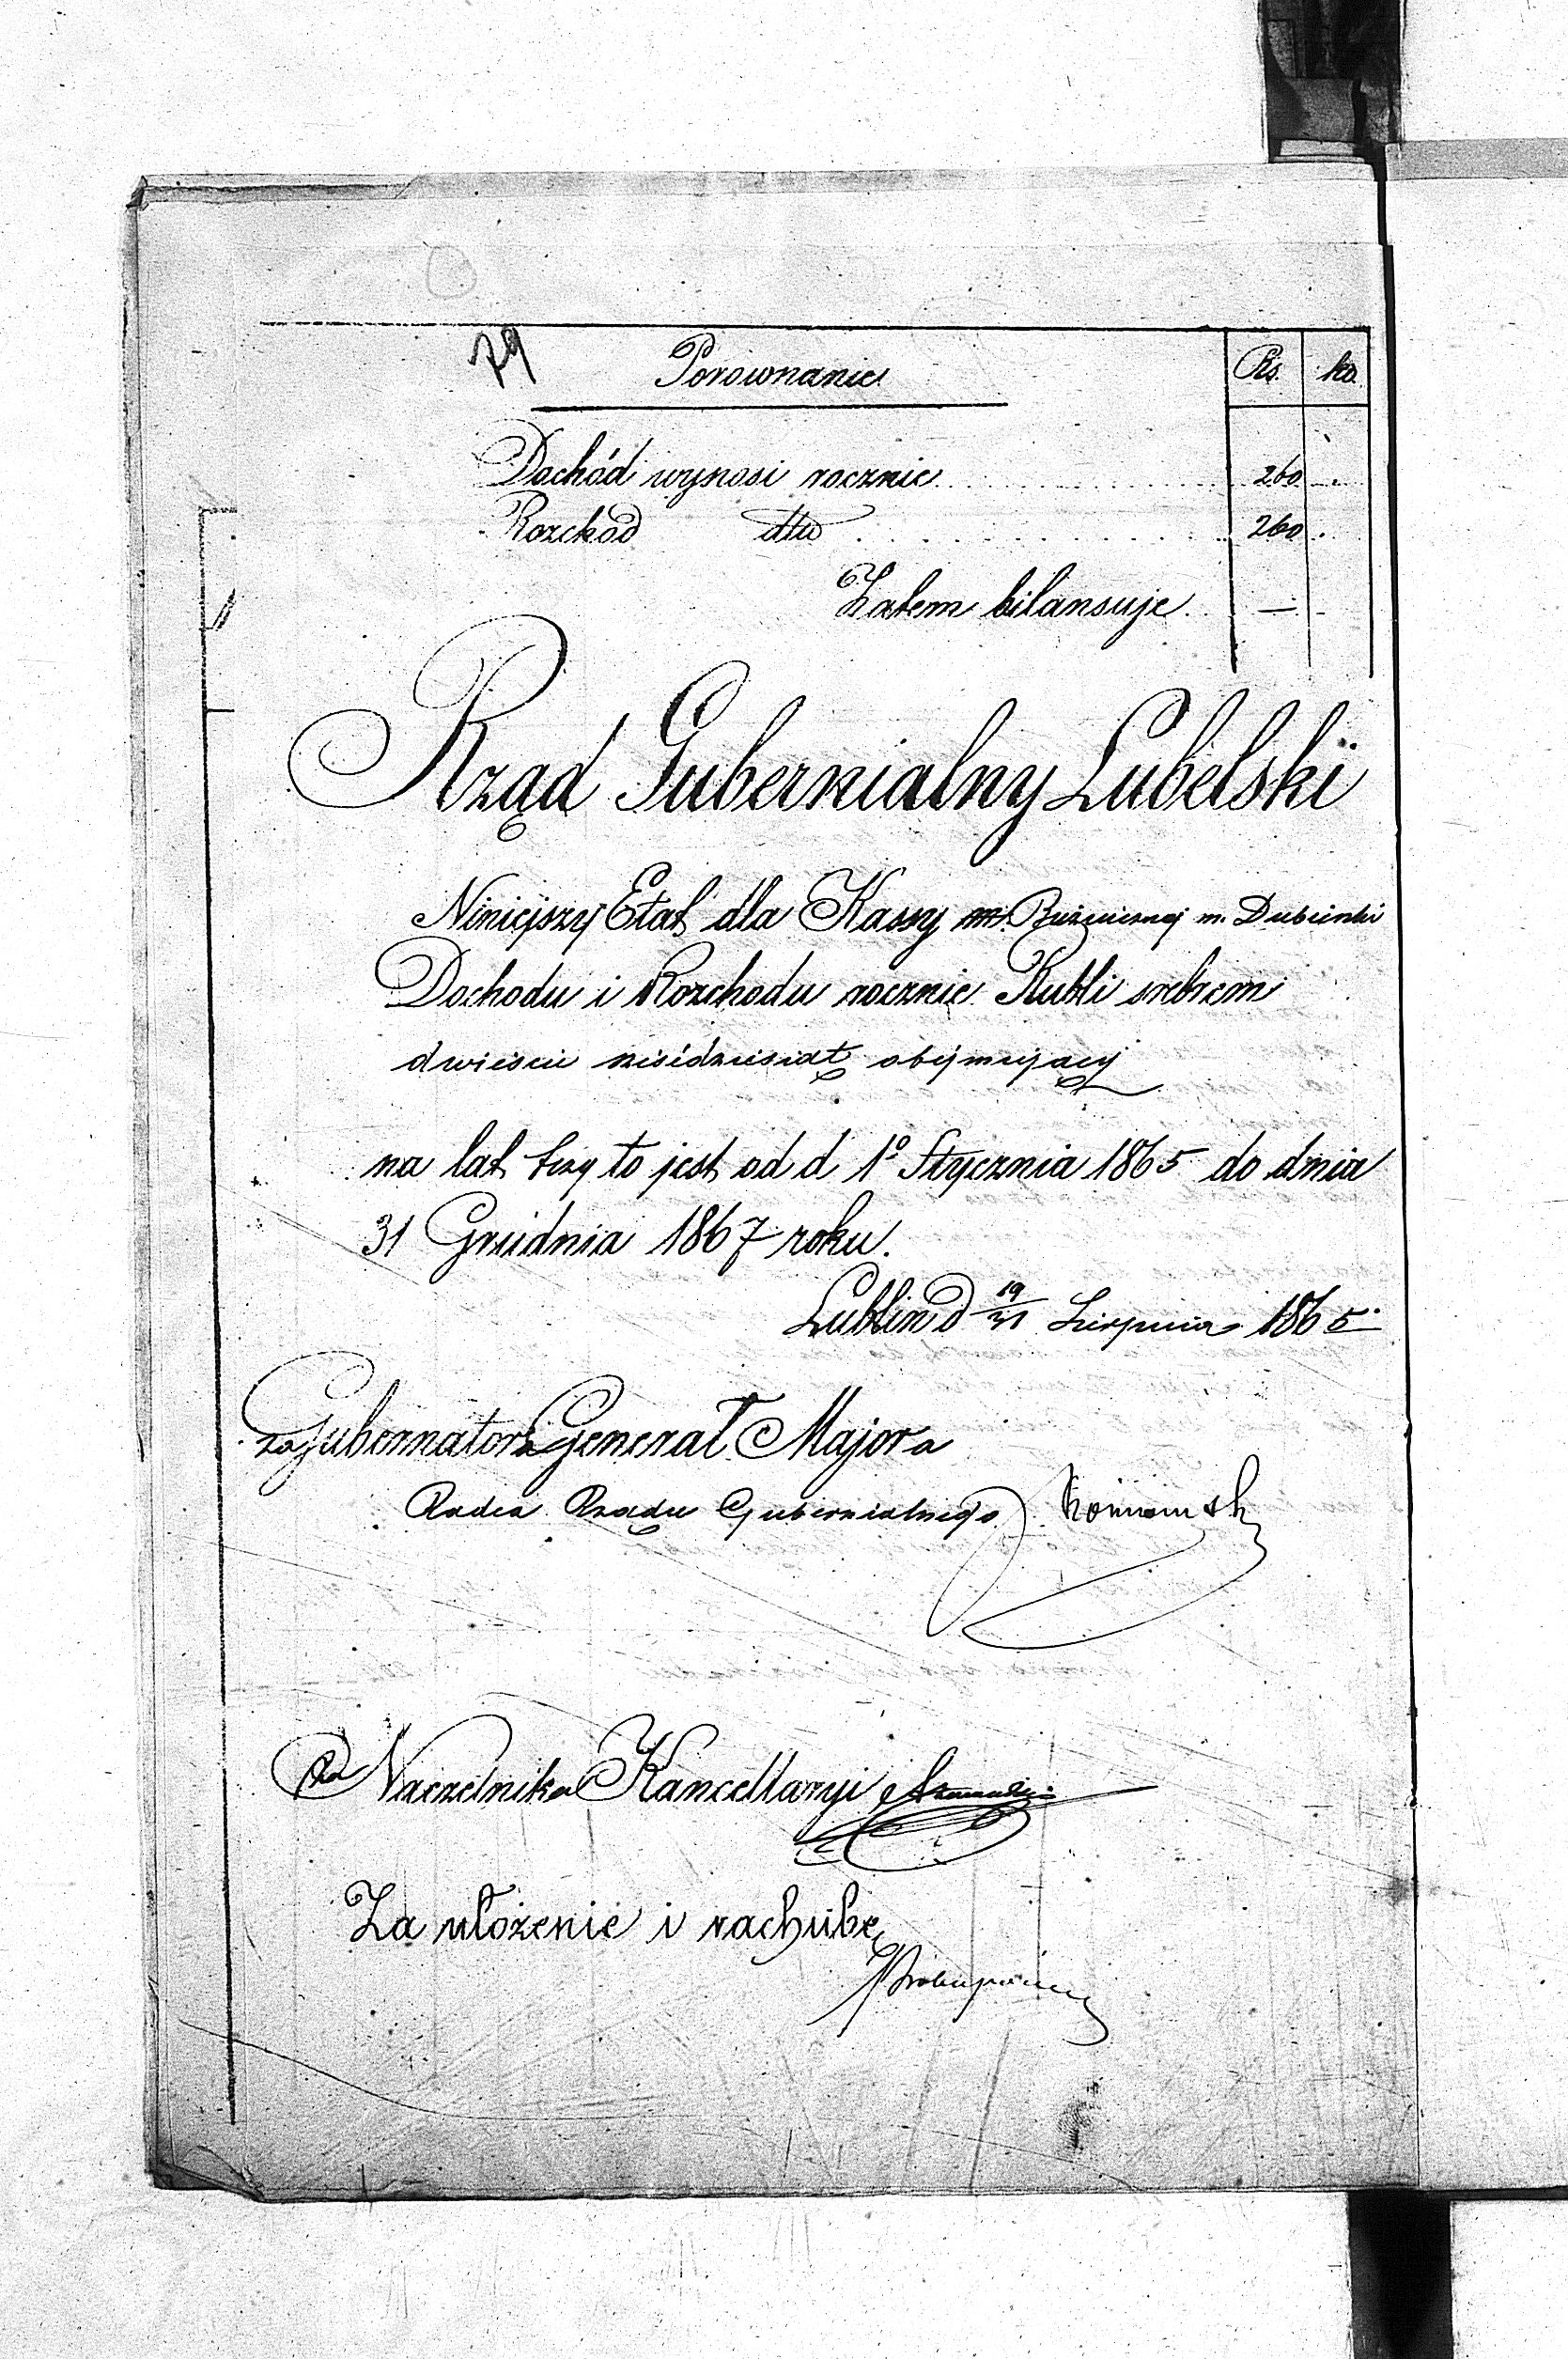 79 Porównanie Rs. ko.
Dochód wynosi rocznie 260 .
Rozchód dtto 260 .
Zatem bilansuje — -
Rząd Gubernialny Lubelski
Niniejszy Etat dla Kassy m. Bużnicznej m. Dubienki
Dochodu i Rozchodu rocznie Rubli srebrem
dwieście sześćdziesiąt obejmujący
na lat trzy to jest od d 1º Stycznia 1865 do dnia
31 Grudnia 1867 roku.
Lublin d 19/31 Sierpnia 1865.
za Gubernatora Generał Majora
Radca Rządu Gubernialnego
Za Naczelnika Kancellaryi
Za ułożenie i rachubę